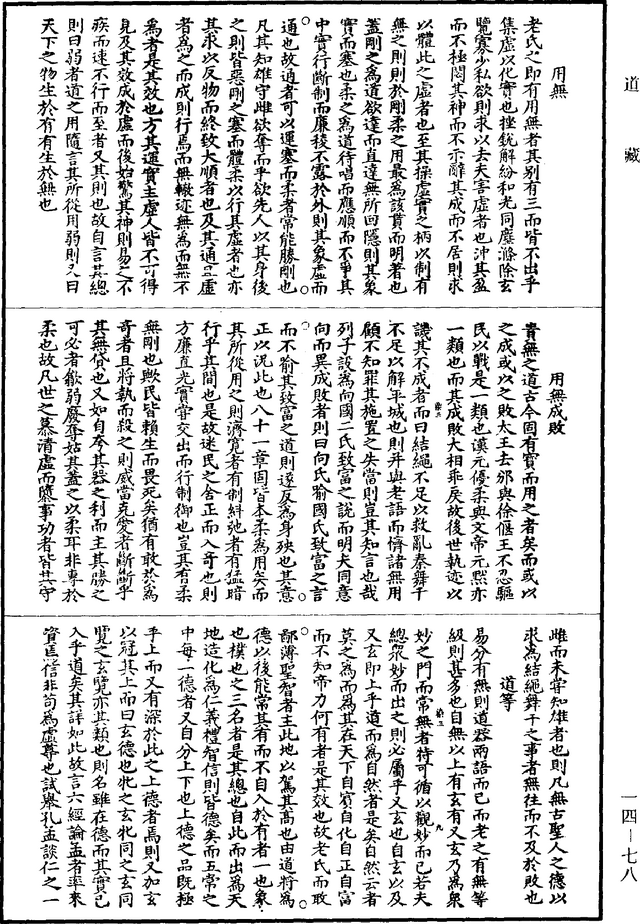 道藏
一四—七八
用無
老氏之即有用無者其別有三而皆不出乎
集虛以化實也挫銳解紛和光同塵滌除玄
覽寡少私欲則求以去夫害虛者也沖其盈
而不極閟其神而不示辭其成而不居則求
以體此之虛者也至其操虛實之柄以制有
無之則則於剛柔之用最為該貫而明著也
蓋剛之為道欲達而直達無所回隱則其象
實而塞也柔之為道待唱而應順而不爭其
中實行斷制而廉稜不露於外則其象虛而
通也故通者可以運塞而柔者常能勝剛也
凡其知雄守雌欲奪而予欲先人以其身後
之則皆惡剛之塞而體柔以行其虛者也亦
其求以反物而終致大順者也及其通虛
者為之而成則行焉而無轍迹無為而無不
為者是其效也方其運實主虛人皆不可得
見及其效成於虛而後始驚其神則易之不
疾而速不行而至者又其則也故自言其總
則曰弱者道之用隨言其所從用弱則又曰
天下之物生於有有生於無也
用無成敗
貴無之道古今固有實而用之者矣而或以
之成或以之敗太王去邠與徐偃王不忍驅
民以戰是一類也漢元優柔與文帝元默亦
一類也而其成敗大相乖戾故後世執迹以
譏其不成者而曰結繩不足以救亂秦舞干
不足以解平城也則并與老語而儕諸無用
顧不知罪其施置之失當則豈其知言也哉
列子設為向國二氏致富之說而明夫同意
向而異成敗者則曰向氏喻國氏致富之言
而不喻其致富之道則遠反為身殃也其意
正以況此也八十一章固皆本柔為用矣而
其所從用之則濟寬者有制糾弛者有猛暗
行乎其間也是故迷民之舍正而入奇也則
方廉直光實嘗交出而行制御也豈其有柔
無剛也歟民皆賴生而畏死矣猶有敢於為
奇者且將執而殺之則威當克愛者斷斷乎
其無貸也又如自奉其器之利而主其勝之
可必者歙弱廢奪姑其蓋之以柔耳非專於
柔也故凡世之慕清虛而隳事功者皆其守
雌而未嘗知雄者也則凡無古聖人之德以
求為結繩舞干之事者無往而不及於敗也
道等
易分有無則道器兩語而已而老之有無等
級則甚多也自無以上有玄有又玄乃為眾
妙之門而常無者特可循以觀妙而已若夫
總眾妙而出之則必屬乎又玄也自玄以及
又玄即上乎道而為自然者是矣自然云者
莫之為而為其在天下自賓自化自正自富
而不知帝力何有者是其效也故老氏而敢
鄙薄聖智者主此地以駕其高也由道將為
德以後能常其有而不自入於有者一也象
也樸也之三名者是其總也自此而出為天
地造化為仁義禮智信則皆德矣而五常之
中每一德者又自分上下也上德之品既極
乎上而又有深於此之上德者焉則又加玄
以冠其上而曰玄德也牝之玄牝同之玄同
覽之玄覽亦其類也則名雖在德而其實已
入乎道矣其詳如此故言六經論孟者率來
資匡信非苟為虛尊也試舉孔孟談仁之一